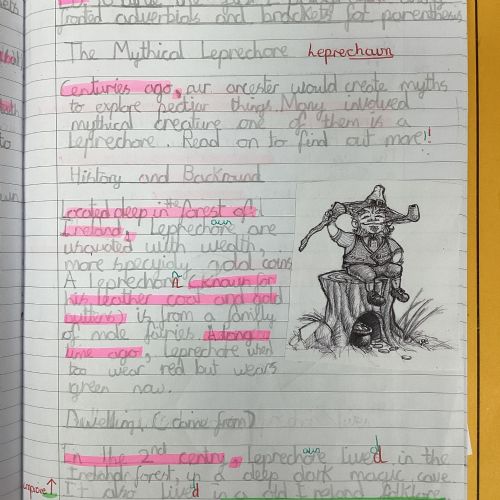 fronted adverbials and brackets for parenthesis
The Mythical Leprechore leprechaun
Centuries ago, our ancester would create myths
to explore pectiar things. Many involved
mythical creature one of them is a
leprechore. Read on to find out more!!
History and Backround
Located deep in the forest of
Ireland, Leprechore aun are
with wealth,
more gold coins
A leprechore n (known for
his leather coat and gold
buttons) is from a family
of male fairies. A long
time ago, leprechore used
too wear red but wears
green now.
Dwelling (: come from)
In the 2nd century, Leprechore aun lived in the
forest, in a deep dark magic cave
It also lived in a old Ireland
improve